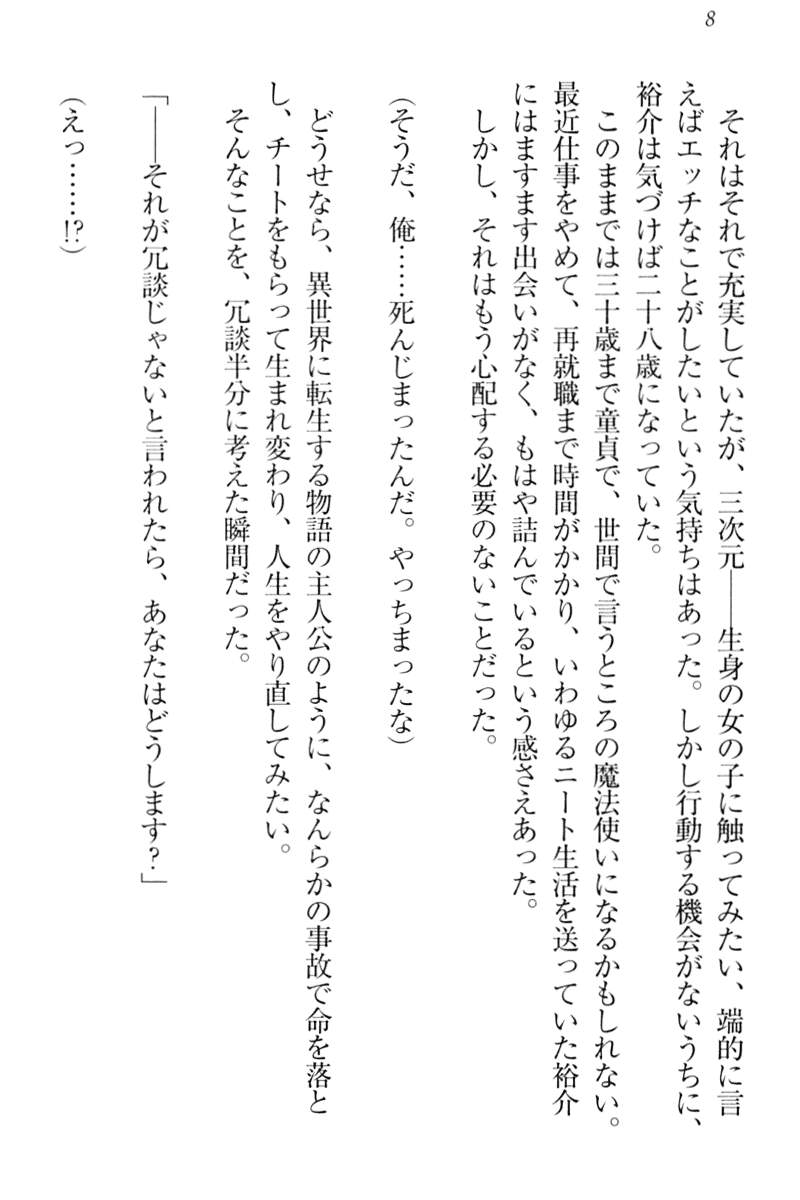 8
それはそれで充実していたが、三次元――生身の女の子に触ってみたい、端的に言
えばエッチなことがしたいという気持ちはあった。しかし行動する機会がないうちに、
裕介は気づけば二十八歳になっていた。
このままでは三十歳まで童貞で、世間で言うところの魔法使いになるかもしれない。
最近仕事をやめて、再就職まで時間がかかり、いわゆるニート生活を送っていた裕介
にはますます出会いがなく、もはや詰んでいるという感さえあった。
しかし、それはもう心配する必要のないことだった。
(そうだ、俺……死んじまったんだ。やっちまったな)
どうせなら、異世界に転生する物語の主人公のように、なんらかの事故で命を落と
し、チートをもらって生まれ変わり、人生をやり直してみたい。
そんなことを、冗談半分に考えた瞬間だった。
「――それが冗談じゃないと言われたら、あなたはどうします?」
(えっ……!?)